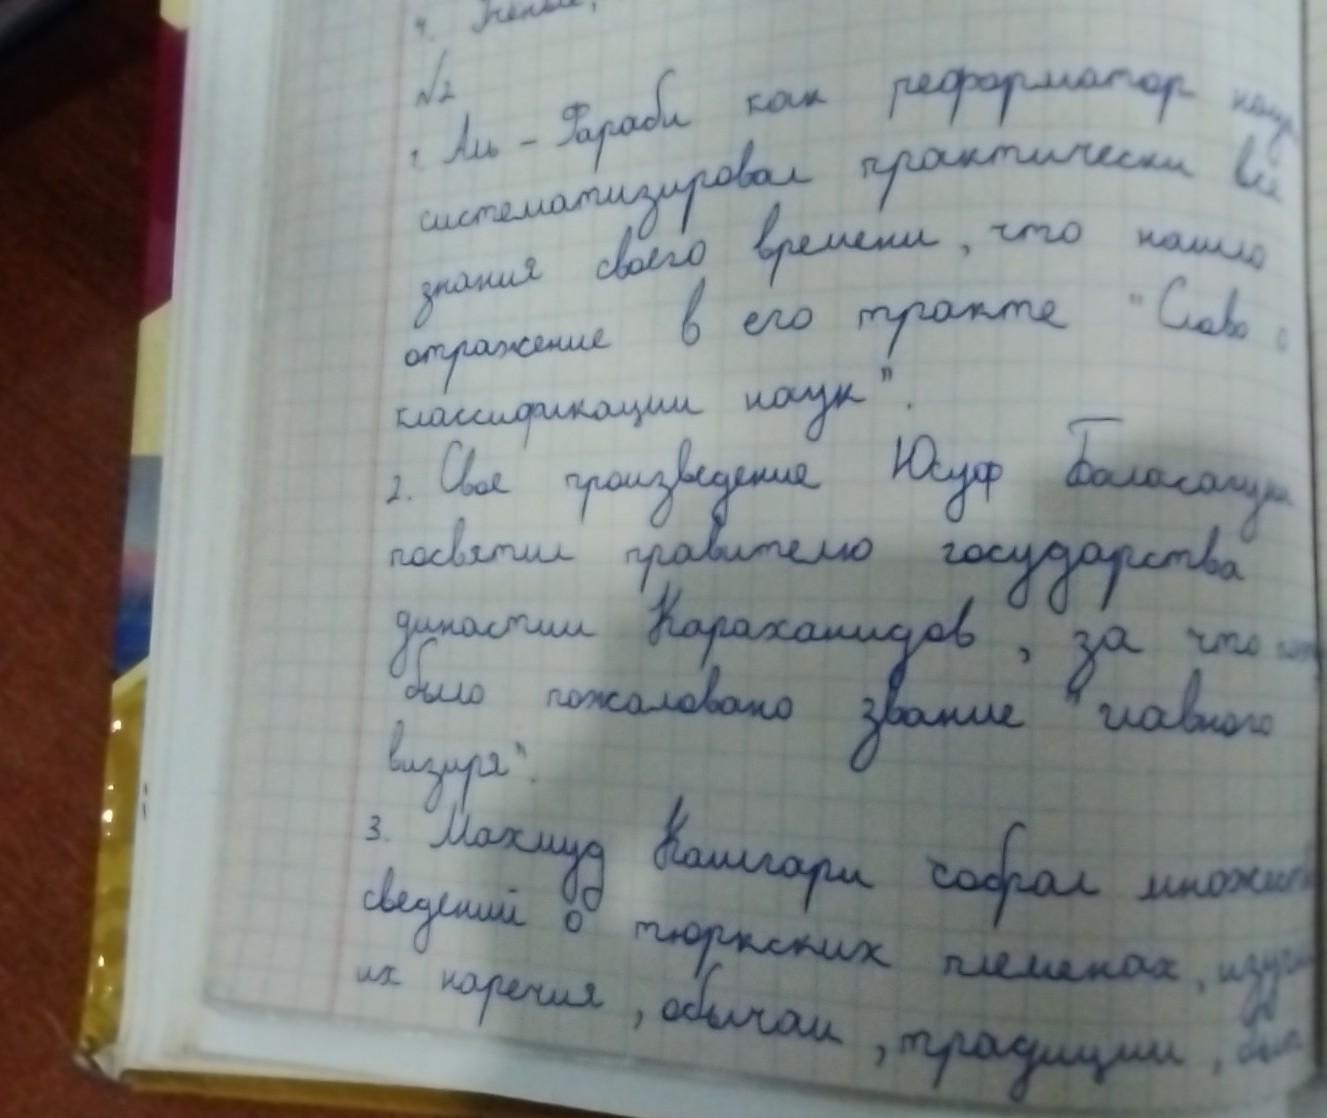 4. Ученые,
№2
1. Аль-Фараби как реформатор наук
систематизировал практически все
знания своего времени, что нашло
отражение в его тракте "Слово о
классификации наук".
2. Свое произведение Юсуф Баласагуни
посвятил правителю государства
династии Караханидов, за что
было пожаловано звание "главного
визиря".
3. Махмуд Кашгари собрал множест
сведений о тюркских племенах,
их наречия, обычаи, традиции,